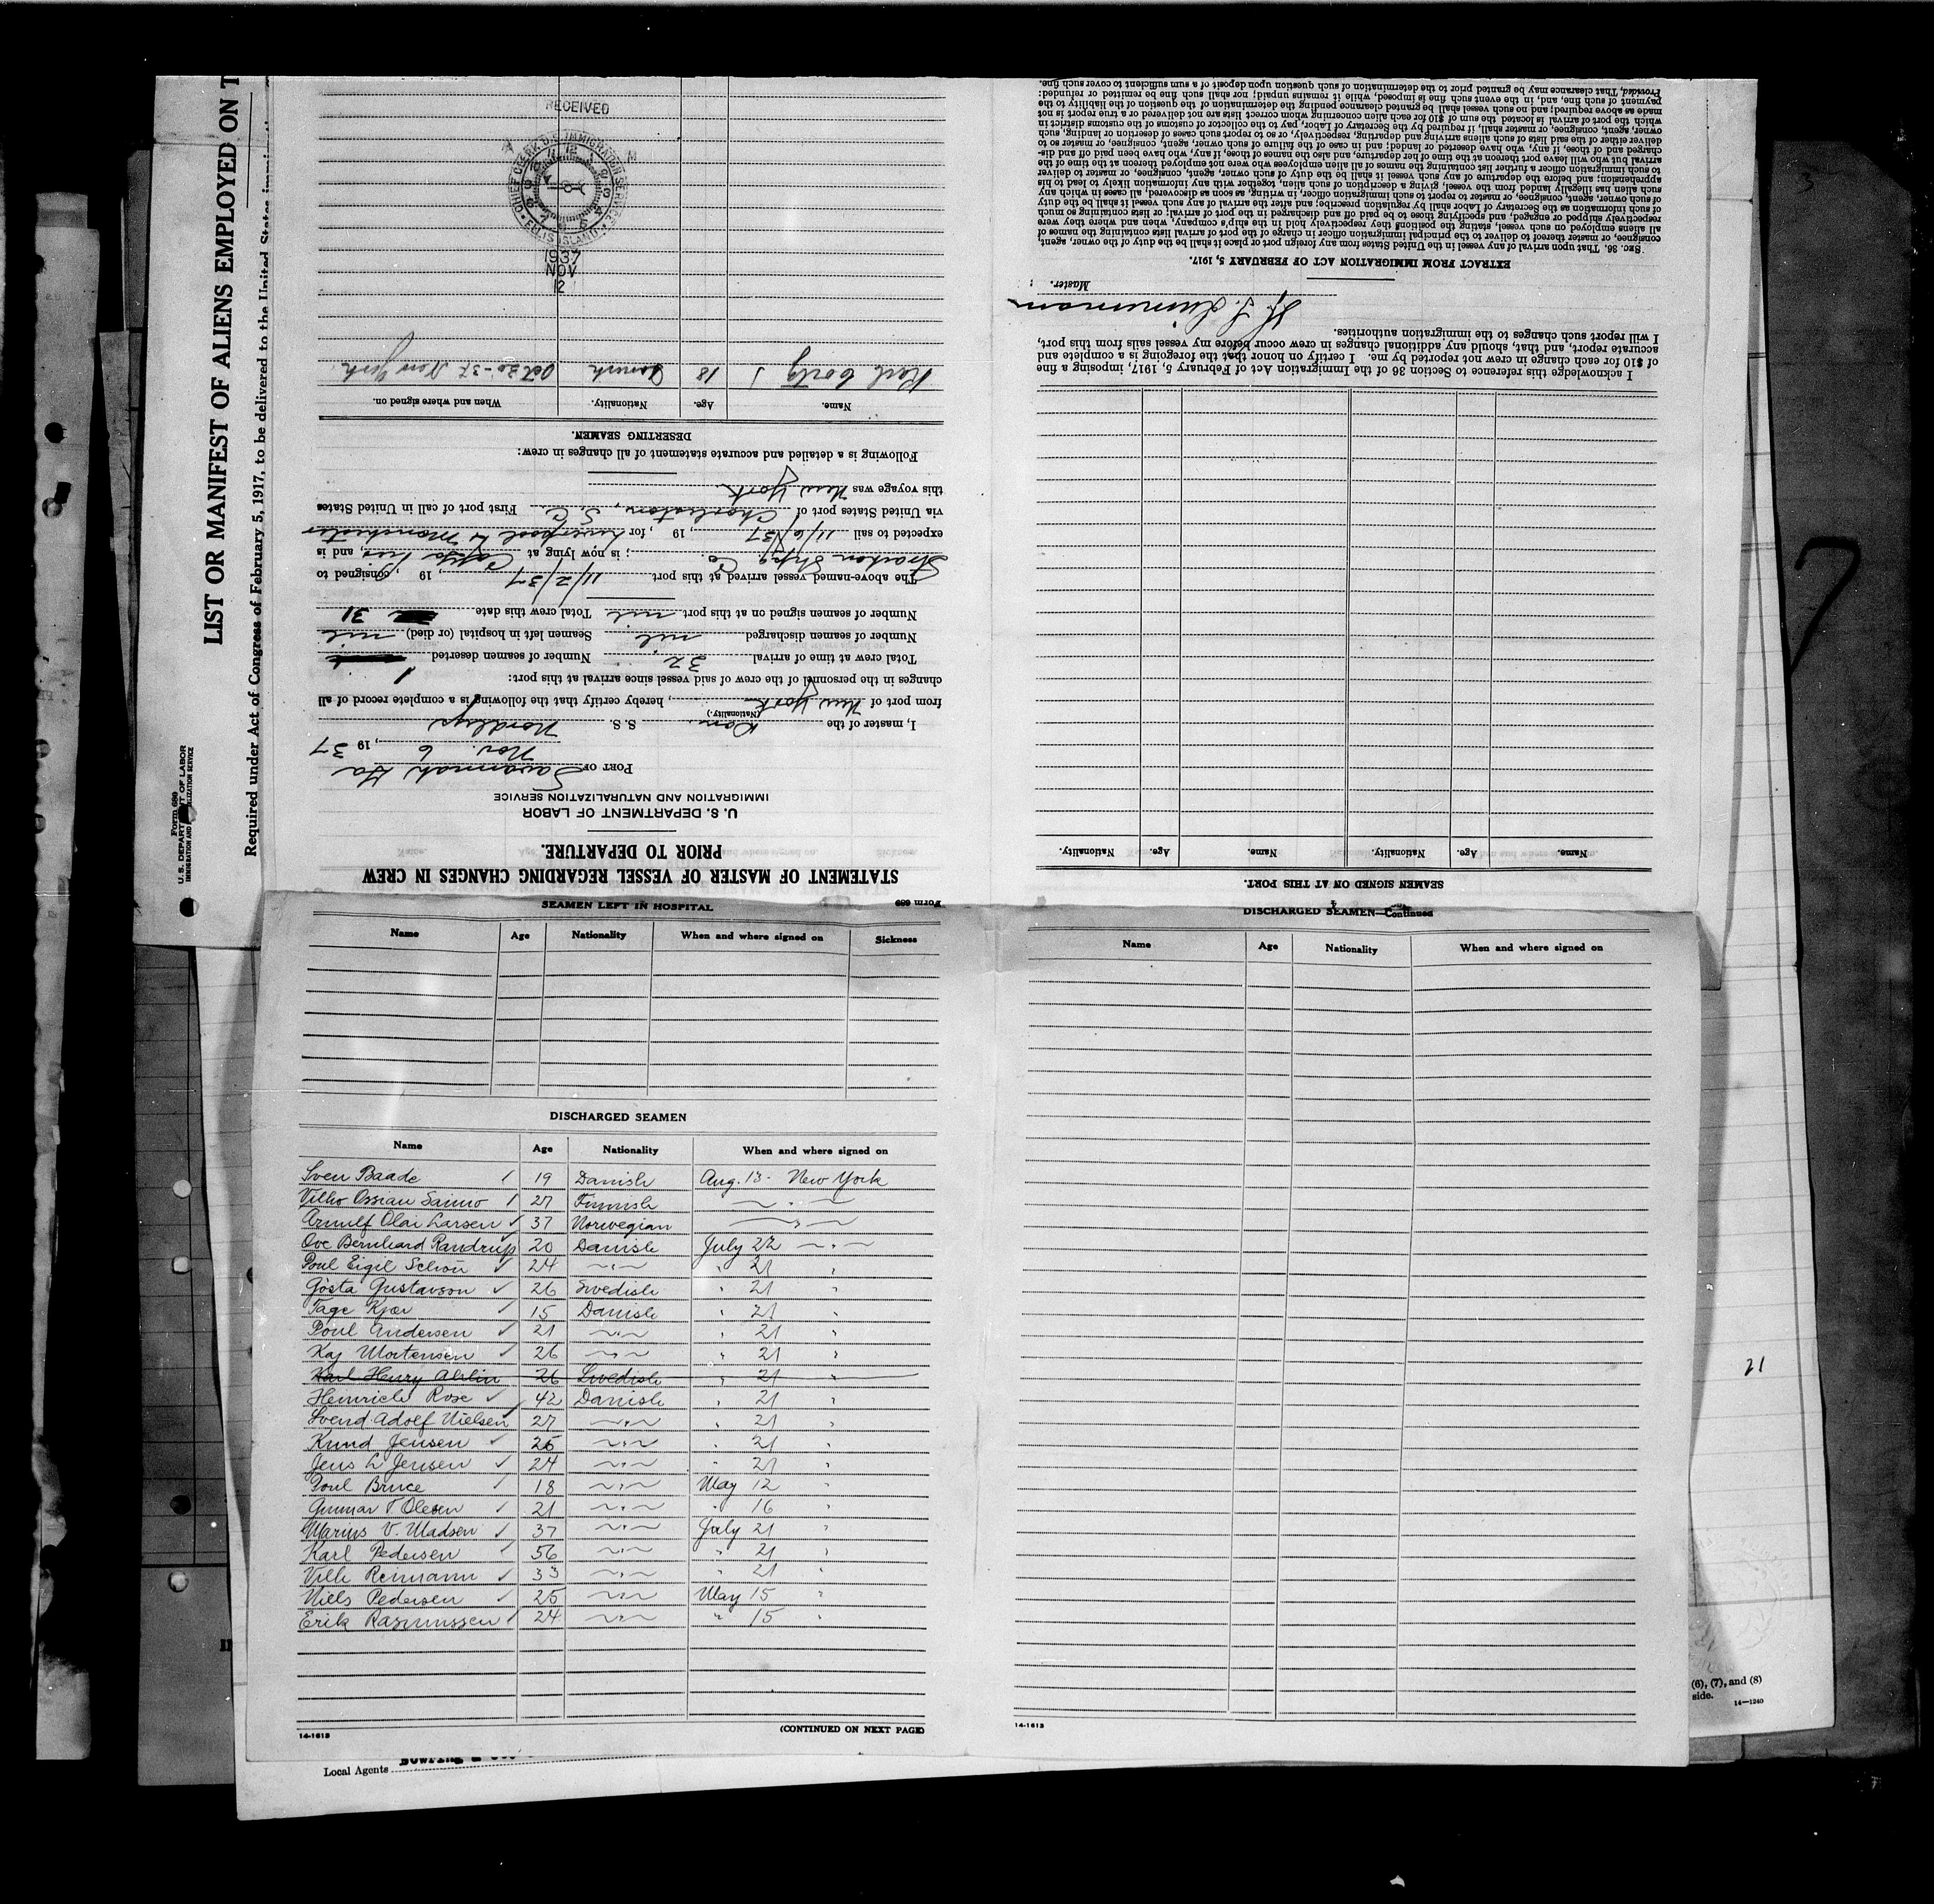 LIST OR MANIFEST OF ALIENS EMPLOYED ON T
Required under Act of Congress of February 5, 1917, to be delivered to the United States
Form 680
U. S. DEPARTMENT OF LABOR
Form 689
STATEMENT OF MASTER OF VESSEL REGARDING CHANGES IN CREW
PRIOR TO DEPARTURE.
U. S. DEPARTMENT OF LABOR
IMMIGRATION AND NATURALIZATION SERVICE
PORT OF Savannah Ga
Nov. 6, 19 37
I, master of the Dan S. S. Nordlys
(Nationality.)
from port of New York, hereby certify that the following is a complete record of all
changes in the personnel of the crew of said vessel since arrival at this port:
Total crew at time of arrival 32 Number of seamen deserted 1
Number of seamen discharged nil Seamen left in hospital (or died) nil
Number of seamen signed on at this port nil Total crew this date 31
The above-named vessel arrived at this port 11/2/37, 19 , consigned to
Strachan Shpg Co.; is now lying at , and is
expected to sail 11/6/37, 19 , for Liverpool & Manchester
via United States port of Charleston, S.C. First port of call in United States
this voyage was New York
Following is a detailed and accurate statement of all changes in crew:
DESERTING SEAMEN.
Name. Age. Nationality. When and where signed on.
Karl 18 Danish Oct 20-37 New York
12
NOV
1937
CHIEF CLERK U.S. IMMIGRATION SERVICE
ELLIS ISLAND
RECEIVED
SEAMEN SIGNED ON AT THIS PORT.
Name. Age. Nationality. Name. Age. Nationality.
I acknowledge this reference to Section 36 of the Immigration Act of February 5, 1917, imposing a fine
of $10 for each change in crew not reported by me. I certify on honor that the foregoing is a complete and
accurate report, and that, should any additional changes in crew occur before my vessel sails from this port,
I will report such changes to the immigration authorities.
Master.
EXTRACT FROM IMMIGRATION ACT OF FEBRUARY 5, 1917.
SEC. 36. That upon arrival of any vessel in the United States from any foreign port or place it shall be the duty of the owner, agent,
consignee, or master thereof to deliver to the principal immigration officer in charge of the port of arrival lists containing the names of
all aliens employed on such vessel, stating the positions they respectively hold in the ship's company, when and where they were
respectively shipped or engaged, and specifying those to be paid off and discharged in the port of arrival; or lists containing so much
of such information as the Secretary of Labor shall by regulation prescribe; and after the arrival of any such vessel it shall be the duty
of such owner, agent, consignee, or master to report to such immigration officer, in writing, as soon as discovered, all cases in which any
such alien has illegally landed from the vessel, giving a description of such alien, together with any information likely to lead to his
apprehension; and before the departure of any such vessel it shall be the duty of such owner, agent, consignee, or master to deliver
to such immigration officer a further list containing the names of all alien employees who were not employed thereon at the time of the
arrival but who will leave port thereon at the time of her departure, and also the names of those, if any, who have been paid off and dis-
charged and of those, if any, who have deserted or landed; and in case of the failure of such owner, agent, consignee, or master so to
deliver either of the said lists of such aliens arriving and departing, respectively, or so to report such cases of desertion or landing, such
owner, agent, consignee, or master shall, if required by the Secretary of Labor, pay to the collector of customs of the customs district in
which the port of arrival is located the sum of $10 for each alien concerning whom correct lists are not delivered or a true report is not
made as above required; and no such vessel shall be granted clearance pending the determination of the question of the liability to the
payment of such fine, and, in the event such fine is imposed, while it remains unpaid; nor shall such fine be remitted or refunded:
Provided, That clearance may be granted prior to the determination of such question upon deposit of a sum sufficient to cover such fine.
SEAMEN LEFT IN HOSPITAL
Name Age Nationality When and where signed on Sickness
DISCHARGED SEAMEN
Name Age Nationality When and where signed on
Sven Baade 19 Danish Aug. 13. New York
Vilho Ossian Saimo 27 Finnish
Arnulf Olai Larsen 37 Norwegian
Ove Bernhard Randrup 20 Danish July 22
Poul Eigil Schou 24 " 21 "
Gösta Gustavson 26 Swedish " 21 "
Tage Kjær 15 Danish " 21 "
Poul Andersen 21 " 21 "
Kaj Mortensen 26 " 21 "
Karl Henry Ahlin 26 Swedish " 21 "
Heinrich Rose 42 Danish " 21 "
Svend Adolf Nielsen 27 " 21 "
Knud Jensen 26 " 21 "
Jens L Jensen 24 " 21 "
Poul Bruce 18 May 12 "
Gunnar T Olesen 21 " 16 "
Marius V. Madsen 37 July 21 "
Karl Pedersen 56 " 21 "
Vilh Reimann 33 " 21 "
Niels Pedersen 25 May 15 "
Erik Rasmussen 24 " 15 "
14-1613
(CONTINUED ON NEXT PAGE)
DISCHARGED SEAMEN—Continued
Name Age Nationality When and where signed on
14-1613
Local Agents
7
21
(6), (7), and (8)
side.
14-1240